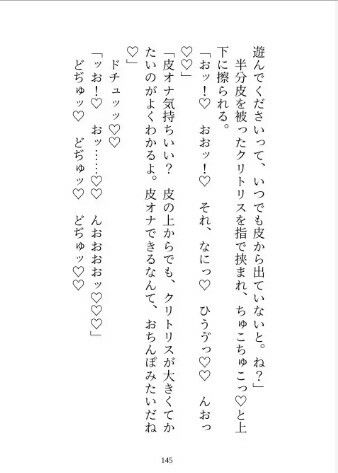 遊んでくださいって、いつでも皮から出ていないと。ね？」
　半分皮を被ったクリトリスを指で挟まれ、ちゅこちゅこっ♡と上
下に擦られる。
「おッ！♡　おおッ！♡　それ、なにっ♡　ひうゔっ♡♡　んおっ
♡♡」
「皮オナ気持ちいい？　皮の上からでも、クリトリスが大きくてか
たいのがよくわかるよ。皮オナできるなんて、おちんぽみたいだね
♡」
　ドチュッッ♡♡
「ッお！♡　おッ……♡♡　んおおおおッ♡♡♡」
　どぢゅッ♡　どぢゅッ♡　どぢゅッ♡♡
145